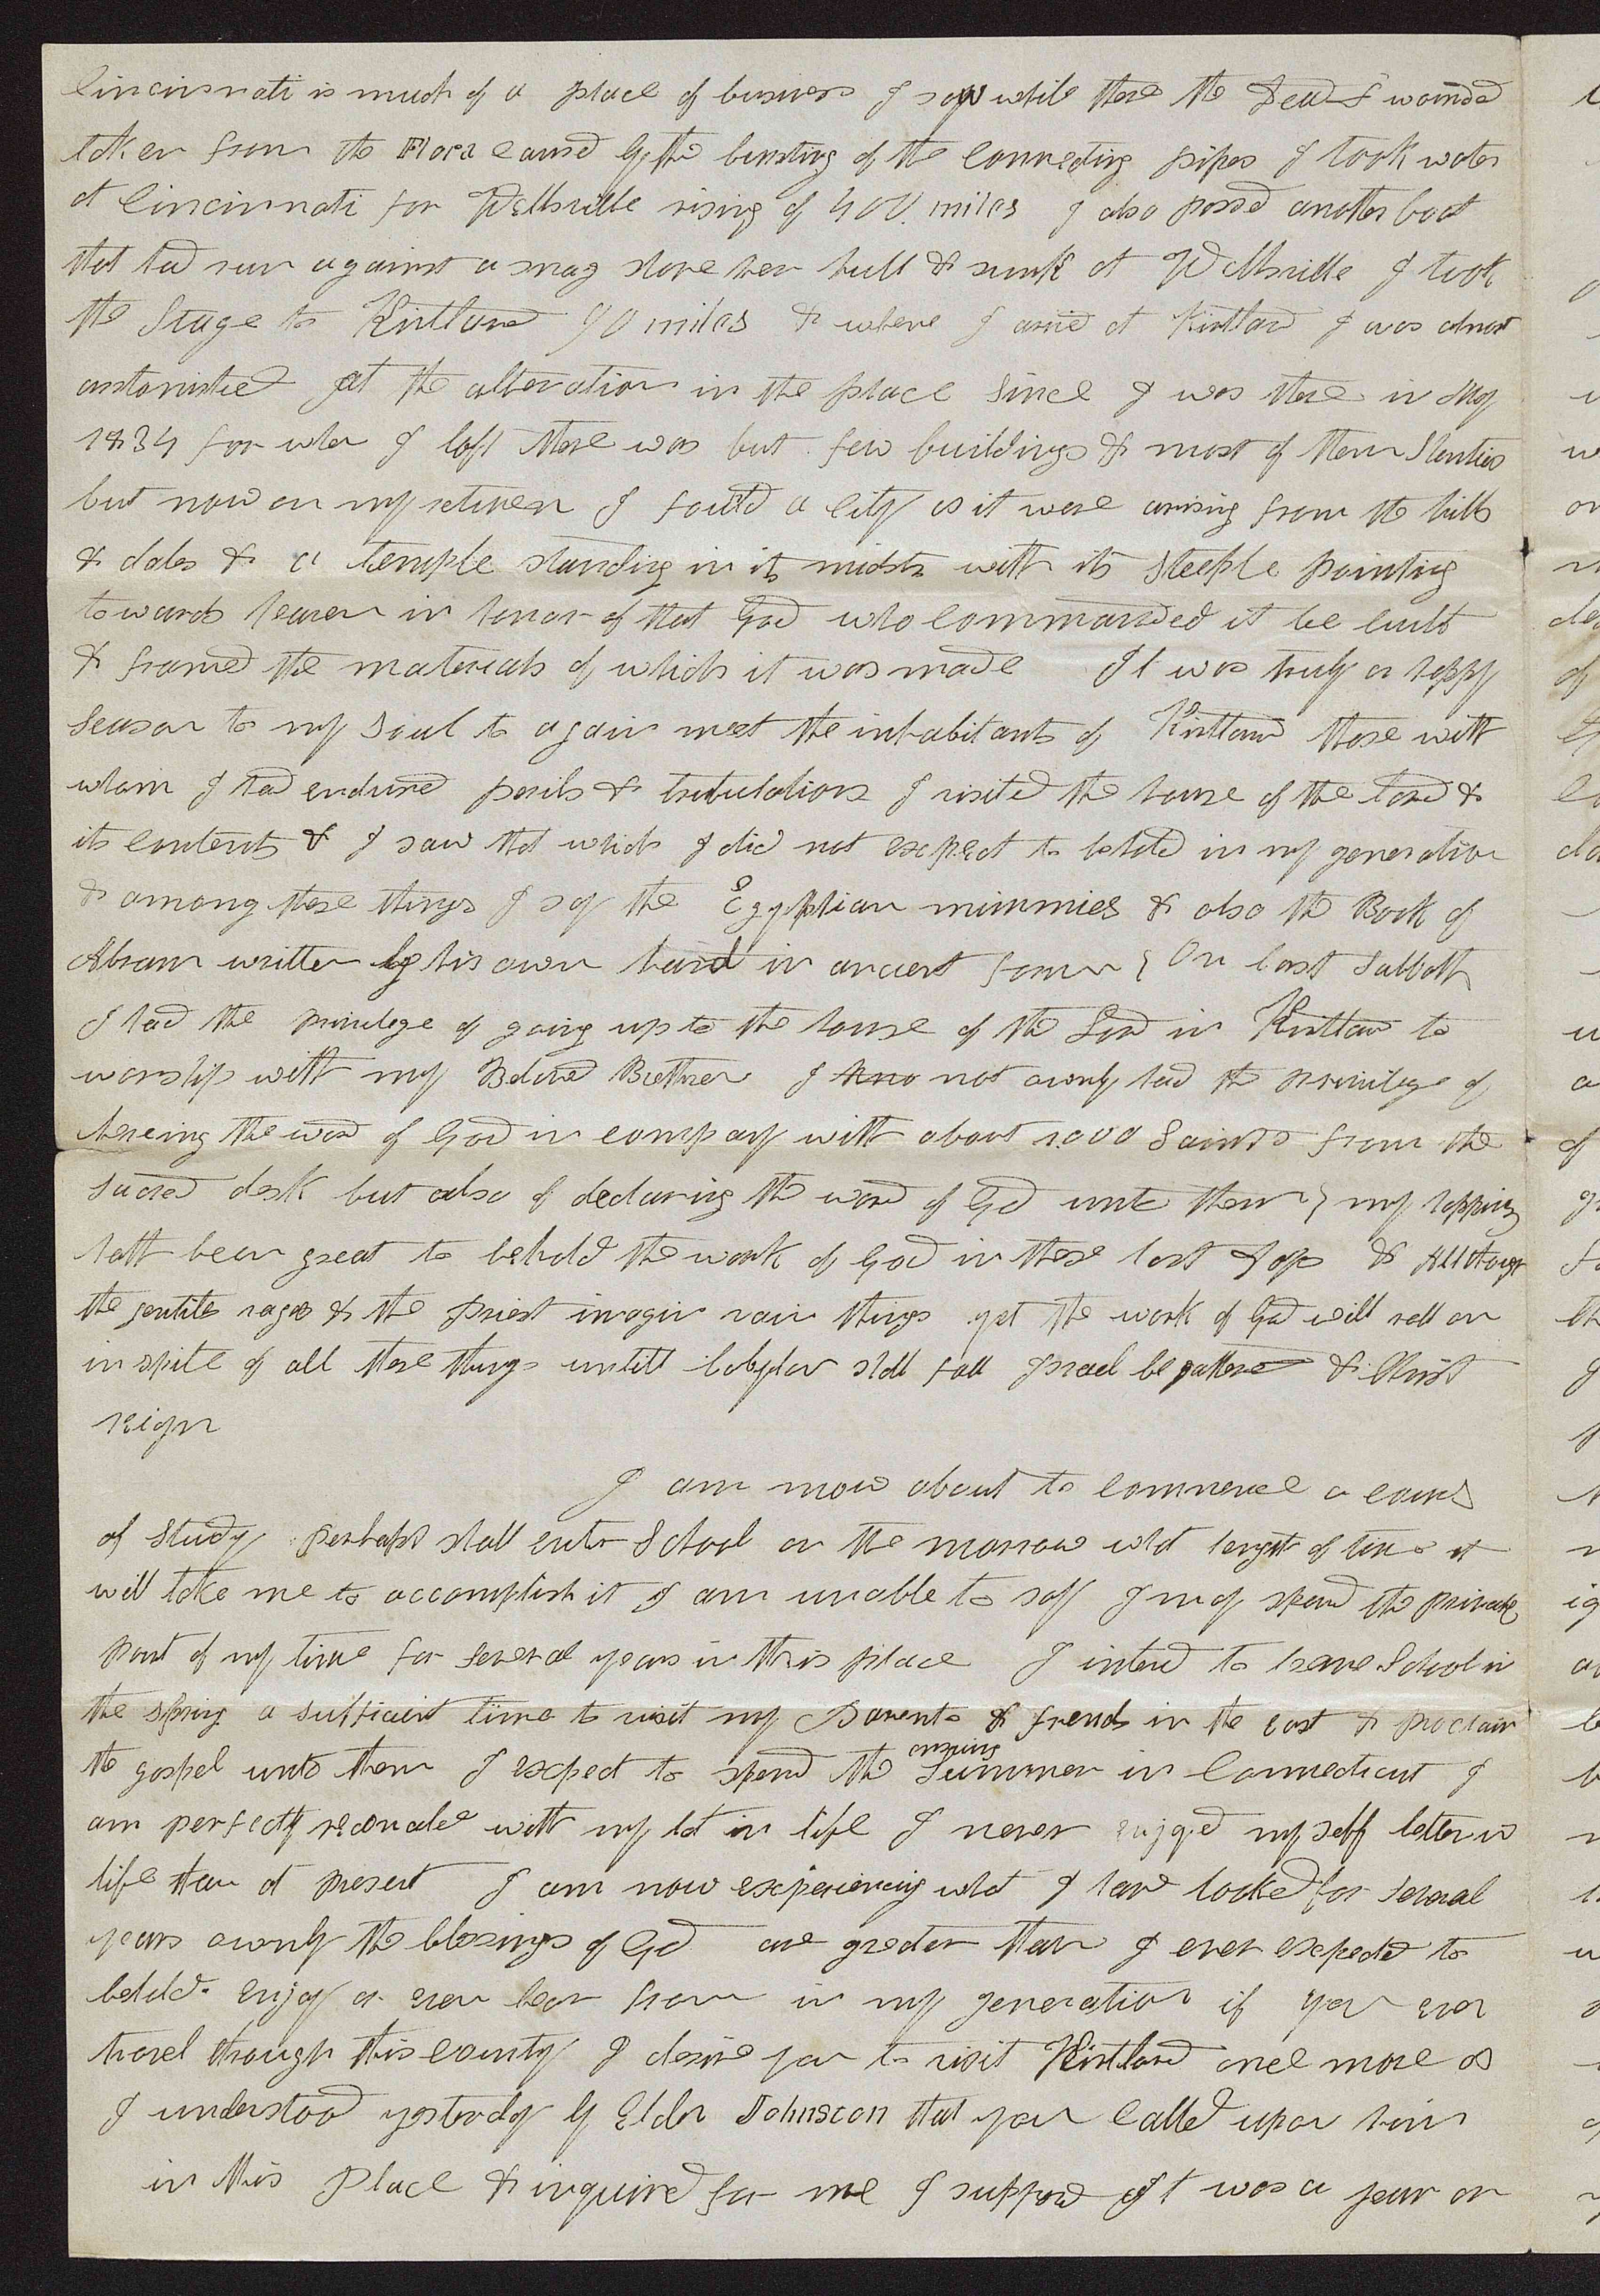 Cincinnati is much of a place of business I say while there the Dead & wounded
taken from the Flora caused by the bursting of the connecting pipes I took water
at Cincinnati for Wellsville rising of 400 miles I also passed another boat
that had run against a snag stove her hull & sunk at Wellsville I took
the Stage to Kirtland 90 miles & where I arrived at Kirtland I was almost
astonished at the alteration in the place since I was there in May
1834 for when I left there was but few buildings & most of them Shanties
but now on my return I found a city as it were arising from the hills
& dales & a temple standing in its midsts with its steeple pointing
towards heaven in honor of that God who commanded it be built
& framed the materials of which it was made It was truly a happy
Season to my Soul to again meet the inhabitants of Kirtland those with
whom I had endured perils & tribulations I visited the house of the Lord &
its contents & I saw that which I did not expect to behold in my generation
& among these things I say the Egyptian mummies & also the Book of
Abram written by his own hand in ancient form On last Sabbath
I had the privilege of going up to the house of the Lord in Kirtland to
worship with my Beloved Brethren I kno not ownly had the privilege of
hereing the word of God in company with about 1000 Saints from the
sacred desk but also of declaring the word of God unto them my happiness
hath been great to behold the work of God in these last days & Although
the gentiles rages & the priest imagin vain things yet the work of God will roll on
in spite of all these things untill babylon shall fall Israel be gathered & Christ
reign
I am now about to commence a cours
of study perhaps shall enter School on the morrow what length of time it
will take me to accomplish it I am unable to say I may spend the private
part of my time for several years in this place I intend to leave School in
the spring a sufficient time to visit my Parents & frends in the east & proclaim
the gospel unto them I expect to spend the ensuing Summer in Connecticut I
am perfectly reconciled with my lot in life I never enjoyed myself better in
life than at present I am now experiencing what I have looked for several
years ownly the blessings of God are greater than I ever expected to
behold enjoy or even hear from in my generation if you ever
travel through this county I desire you to visit Kirtland once more as
I understood yesterday by Elder Johnson that you called upon him
in this place & inquired for me I suppose it was a year or